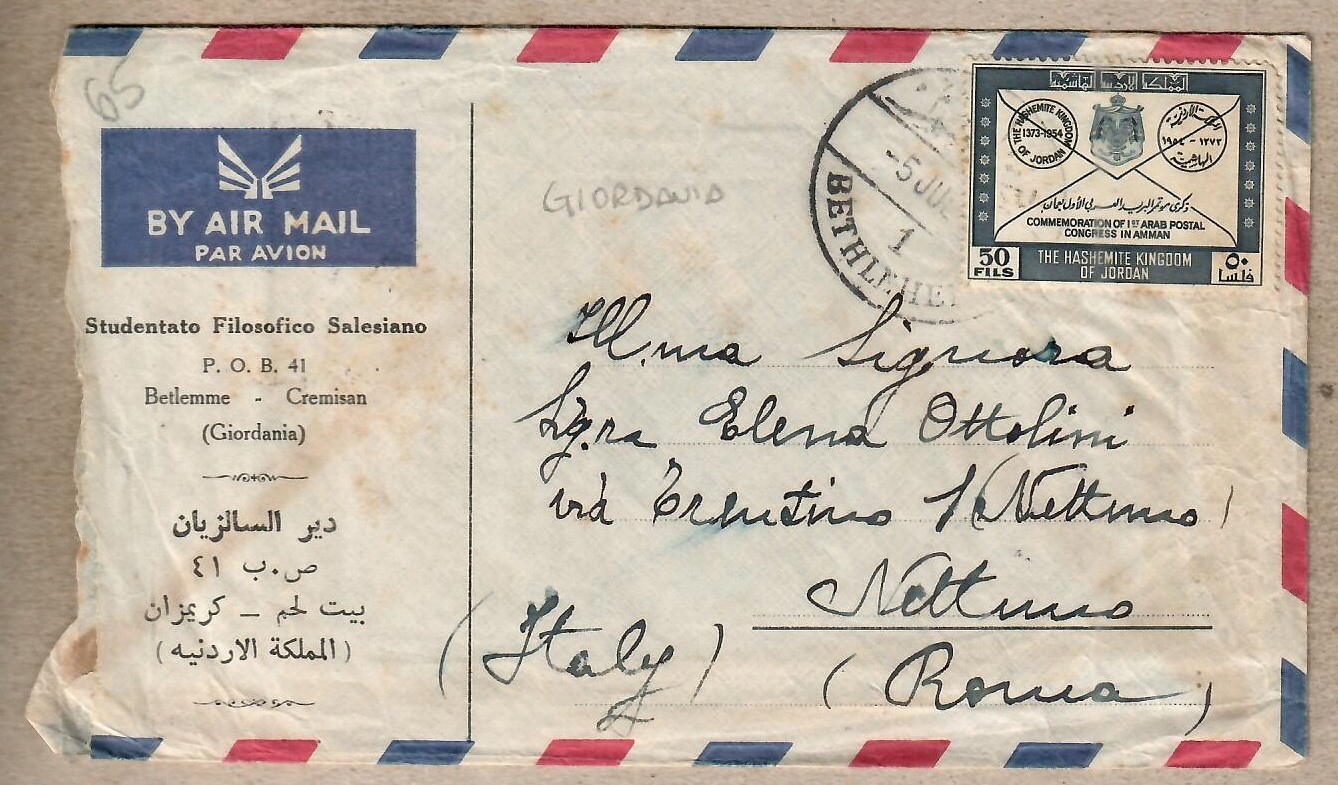 65
BY AIR MAIL
PAR AVION
Studentato Filosofico Salesiano
P. O. B. 41
Betlemme - Cremisan
(Giordania)
دير السالزيان
ص.ب ٤١
بيت لحم – كريمزان
(المملكة الاردنيه)
GIORDANIA
-5 JUL
1
BETHLEHE
THE HASHEMITE KINGDOM
1373-1954
OF JORDAN
المملكة الأردنية
١٣٧٣ - ١٩٥٤
الهاشمية
ذكرى مؤتمر البريد العربي الأول بعمان
COMMEMORATION OF 1ST ARAB POSTAL
CONGRESS IN AMMAN
50 FILS
THE HASHEMITE KINGDOM
OF JORDAN
٥٠ فلسا
Ill.ma Signora
Sig.ra Elena Ottolini
via Trentino 1 (Nettuno)
Nettuno
(Italy) (Roma)